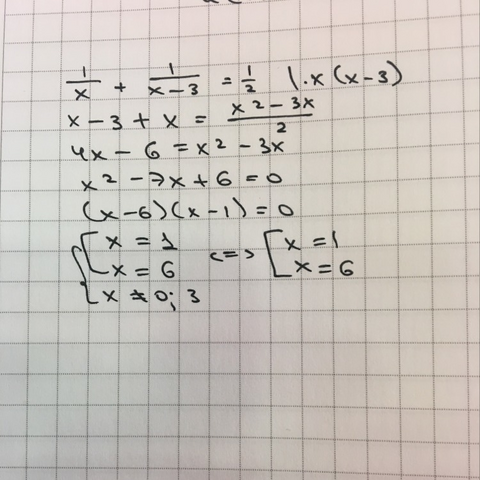 1/x + 1/(x-3) = 1/2 | · x (x-3)
x - 3 + x = (x2 - 3x)/2
4x - 6 = x2 - 3x
x2 - 7x + 6 = 0
(x-6)(x-1) = 0
{[x = 1 <=> [x = 1
x = 6 x = 6
x ≠ 0; 3